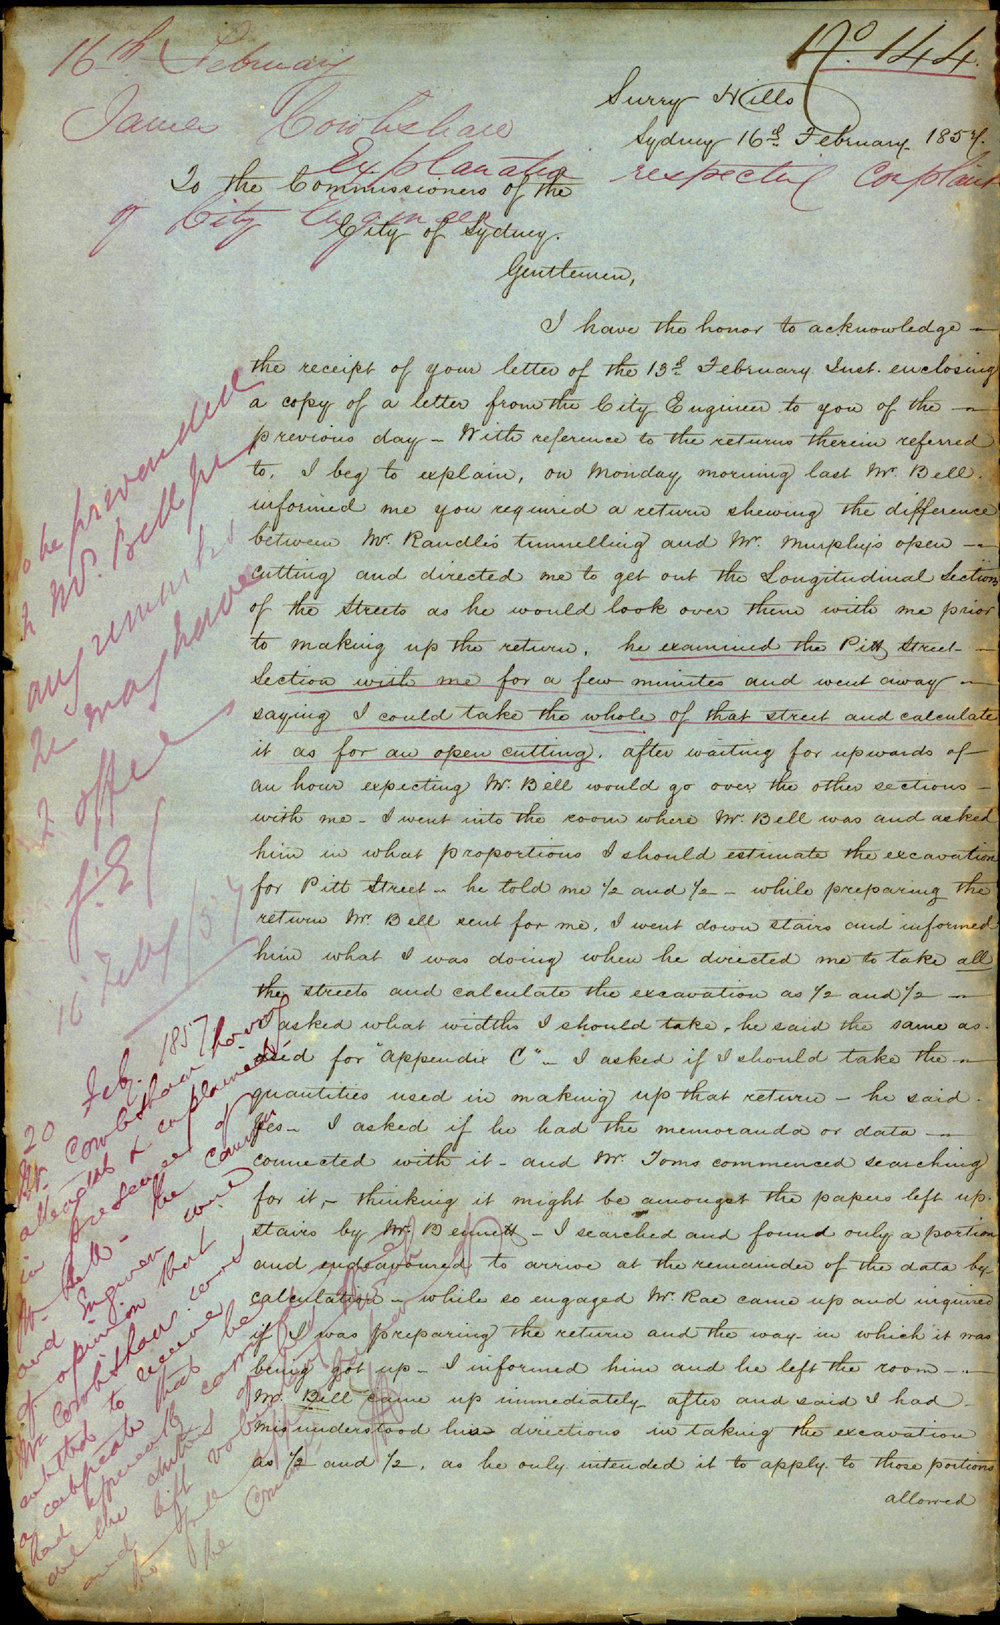 No. 144.
16th February
James Cowlishaw
Explanation respecting Complaint
of City Engineer
Surry Hills
Sydney 16th February 1857.
To the Commissioners of the
City of Sydney.
Gentlemen,
I have the honor to acknowledge
the receipt of your letter of the 13th February Inst. enclosing
a copy of a letter from the City Engineer to you of the
previous day – With reference to the returns therein referred
to, I beg to explain, on Monday morning last Mr. Bell
informed me you required a return shewing the difference
between Mr. Randle's tunnelling and Mr. Murphy's open
cutting and directed me to get out the Longitudinal Sections
of the streets as he would look over them with me prior
to making up the return, he examined the Pitt Street
Section with me for a few minutes and went away
saying I could take the whole of that street and calculate
it as for an open cutting, after waiting for upwards of
an hour expecting Mr. Bell would go over the other sections
with me – I went into the room where Mr. Bell was and asked
him in what proportions I should estimate the excavation
for Pitt Street – he told me 1/2 and 1/2 – while preparing the
return Mr. Bell sent for me, I went down stairs and informed
him what I was doing when he directed me to take all
the streets and calculate the excavation as 1/2 and 1/2 –
I asked what widths I should take, he said the same as
used for "Appendix C" – I asked if I should take the
quantities used in making up that return – he said
Yes – I asked if he had the memoranda or data
connected with it – and Mr. Toms commenced searching
for it, – thinking it might be amongst the papers left up
stairs by Mr. Bennett – I searched and found only a portion
and endeavoured to arrive at the remainder of the data by
calculation – while so engaged Mr. Rae came up and inquired
if I was preparing the return and the way in which it was
being got up – I informed him and he left the room –
Mr. Bell came up immediately after and said I had
misunderstood his directions in taking the excavation
as 1/2 and 1/2, as he only intended it to apply to those portions
allowed
To be forwarded
to Mr. Bell for
any remarks
he may have
to offer
16 Feby /57
20 Feby. 1857
Mr. Cowlishaw having
attended & explained
in presence of
Mr Bell – the
and Engineer were
of opinion that
Mr Cowlishaw was
entitled to receive
a certificate that he
had
all the duties of his office
and left
to
the